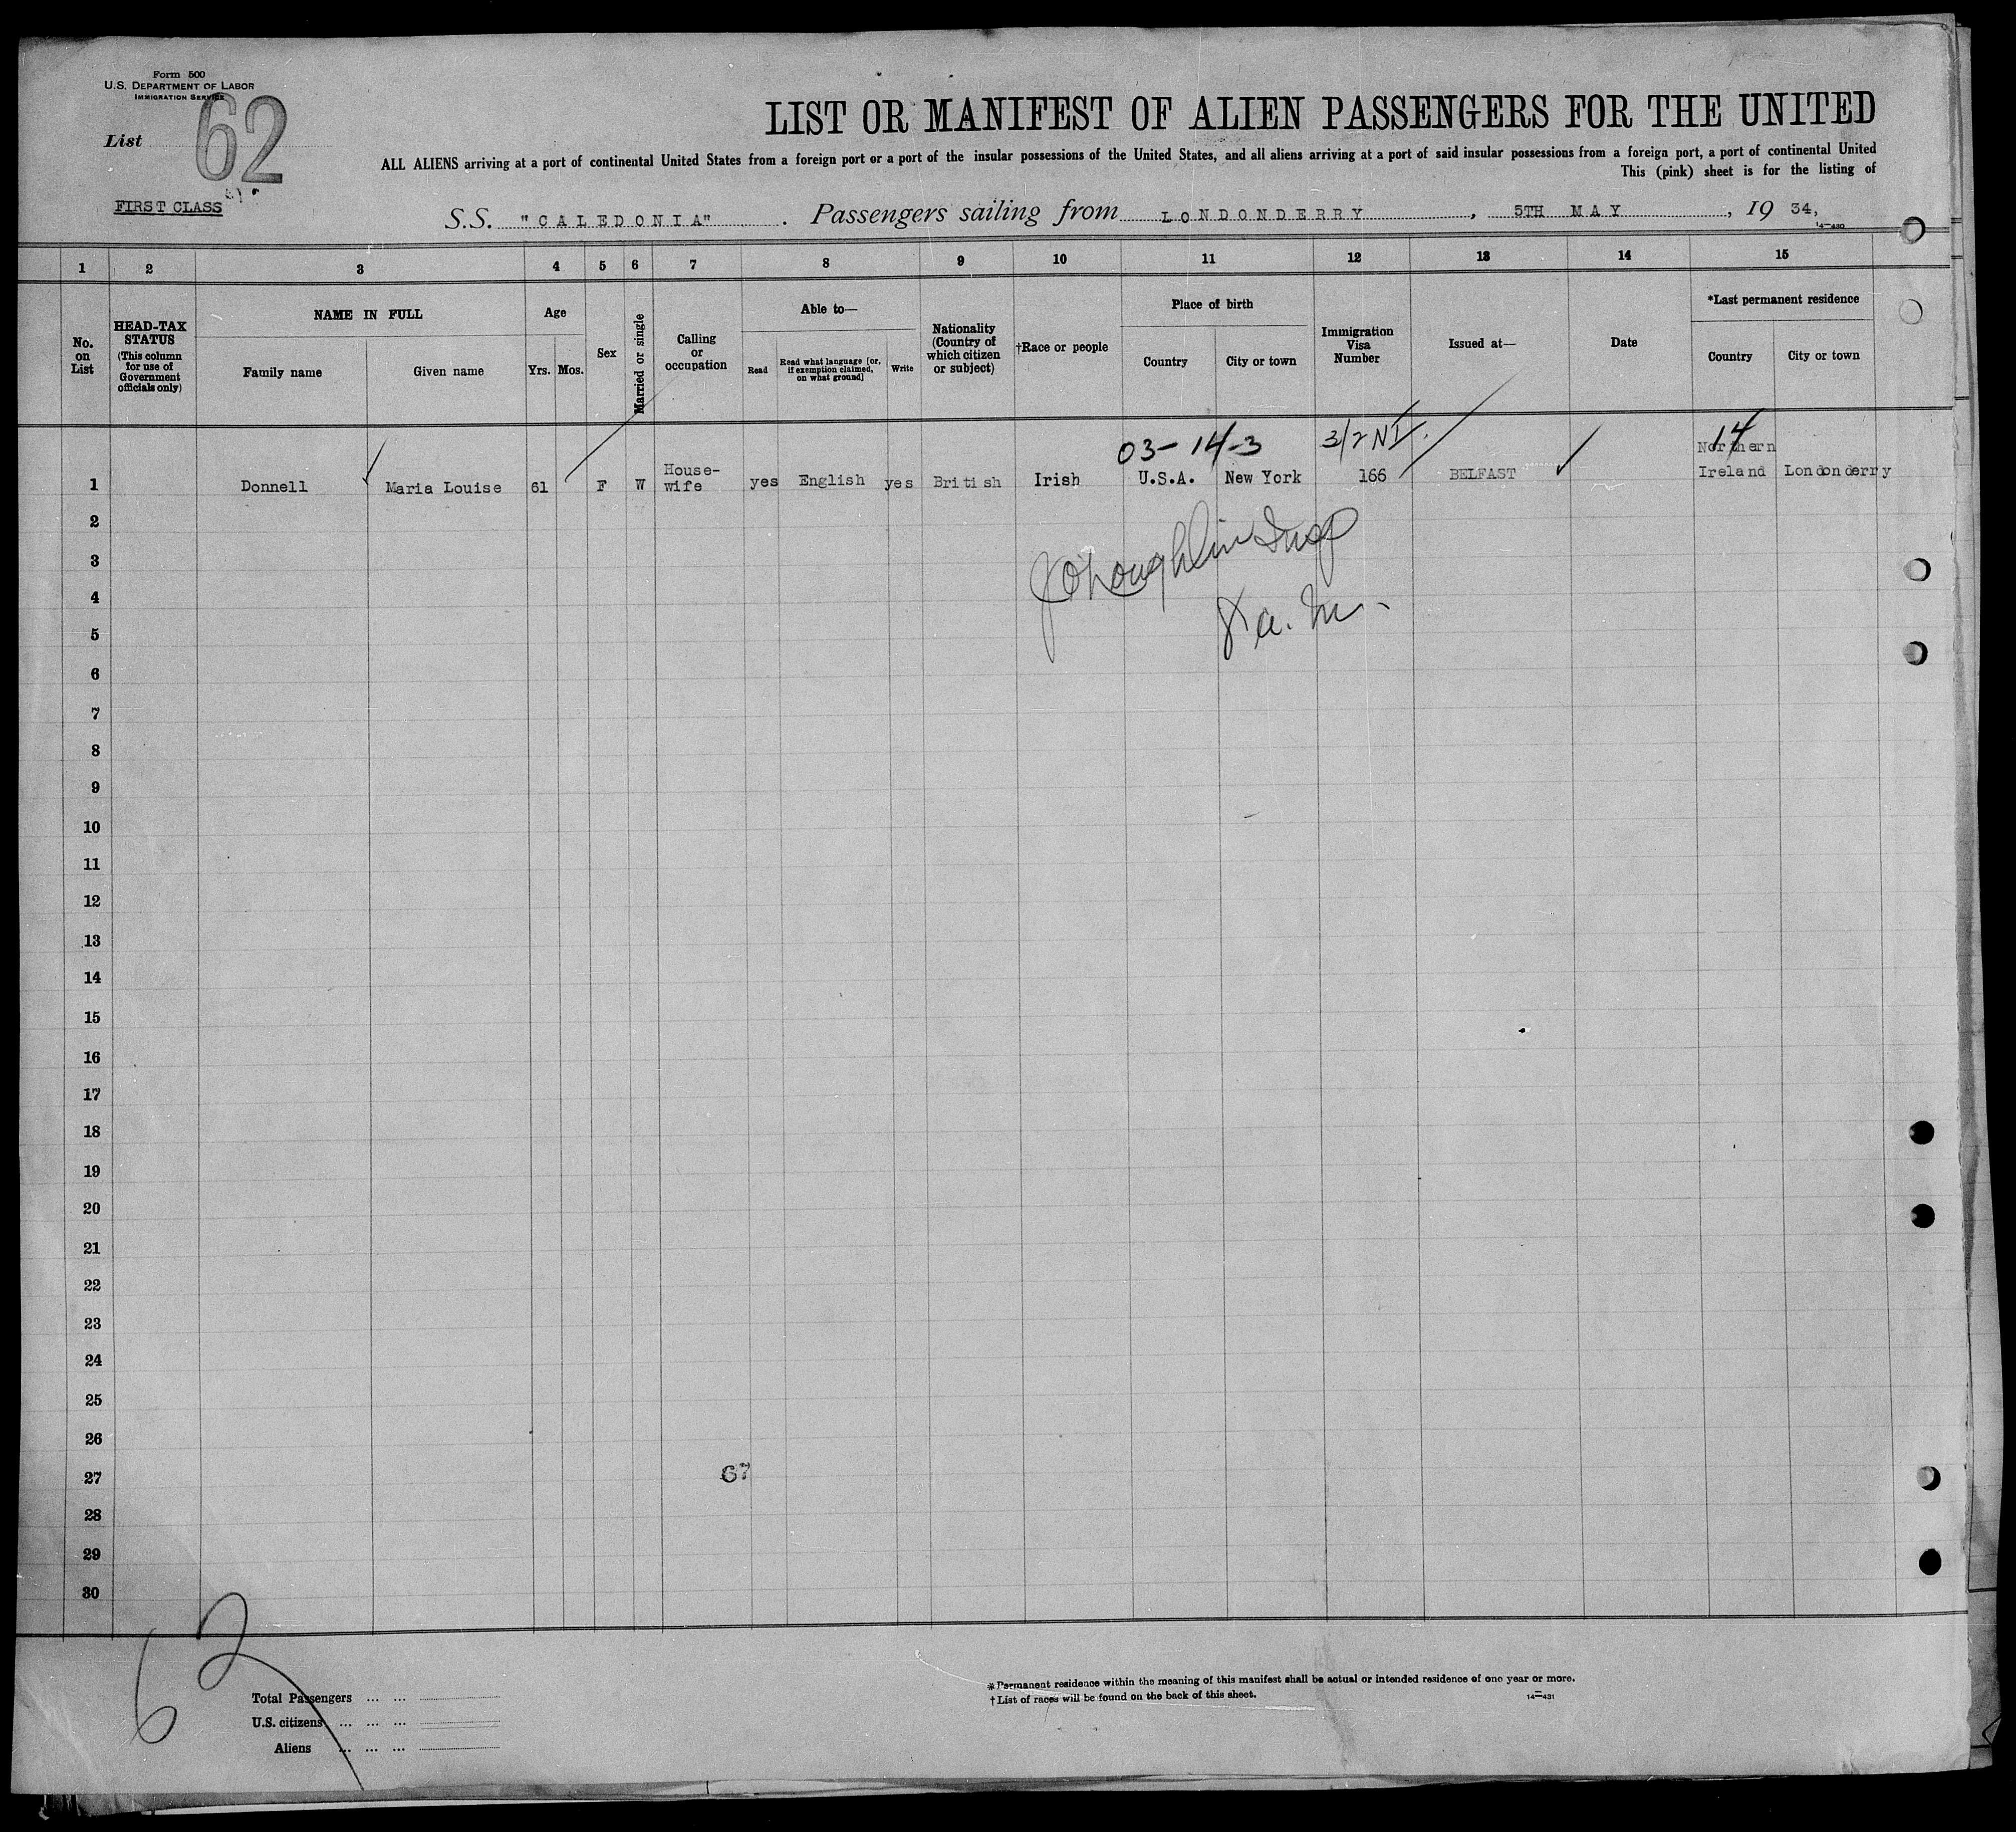 Form 500
U.S. DEPARTMENT OF LABOR
IMMIGRATION SERVICE
List 62
LIST OR MANIFEST OF ALIEN PASSENGERS FOR THE UNITED
ALL ALIENS arriving at a port of continental United States from a foreign port or a port of the insular possessions of the United States, and all aliens arriving at a port of said insular possessions from a foreign port, a port of continental United
This (pink) sheet is for the listing of
FIRST CLASS
S.S. "CALEDONIA". Passengers sailing from LONDONDERRY, 5TH MAY, 19 34,
14—430
1 2 3 4 5 6 7 8 9 10 11 12 13 14 15
No. on List
HEAD-TAX STATUS
(This column for use of Government officials only)
NAME IN FULL
Family name
Given name
Age
Yrs. Mos.
Sex
Married or single
Calling or occupation
Able to—
Read
Read what language [or, if exemption claimed, on what ground]
Write
Nationality (Country of which citizen or subject)
†Race or people
Place of birth
Country
City or town
Immigration Visa Number
Issued at—
Date
*Last permanent residence
Country
City or town
03-14-3 3/2 NI 14
1 Donnell Maria Louise 61 F W House-wife yes English yes British Irish U.S.A. New York 166 BELFAST Northern Ireland Londonderry
2
3
4
5
6
7
8
9
10
11
12
13
14
15
16
17
18
19
20
21
22
23
24
25
26
27 67
28
29
30
62
Total Passengers ... ...
U.S. citizens ... ... ...
Aliens ... ... ...
*Permanent residence within the meaning of this manifest shall be actual or intended residence of one year or more.
†List of races will be found on the back of this sheet.
14—431